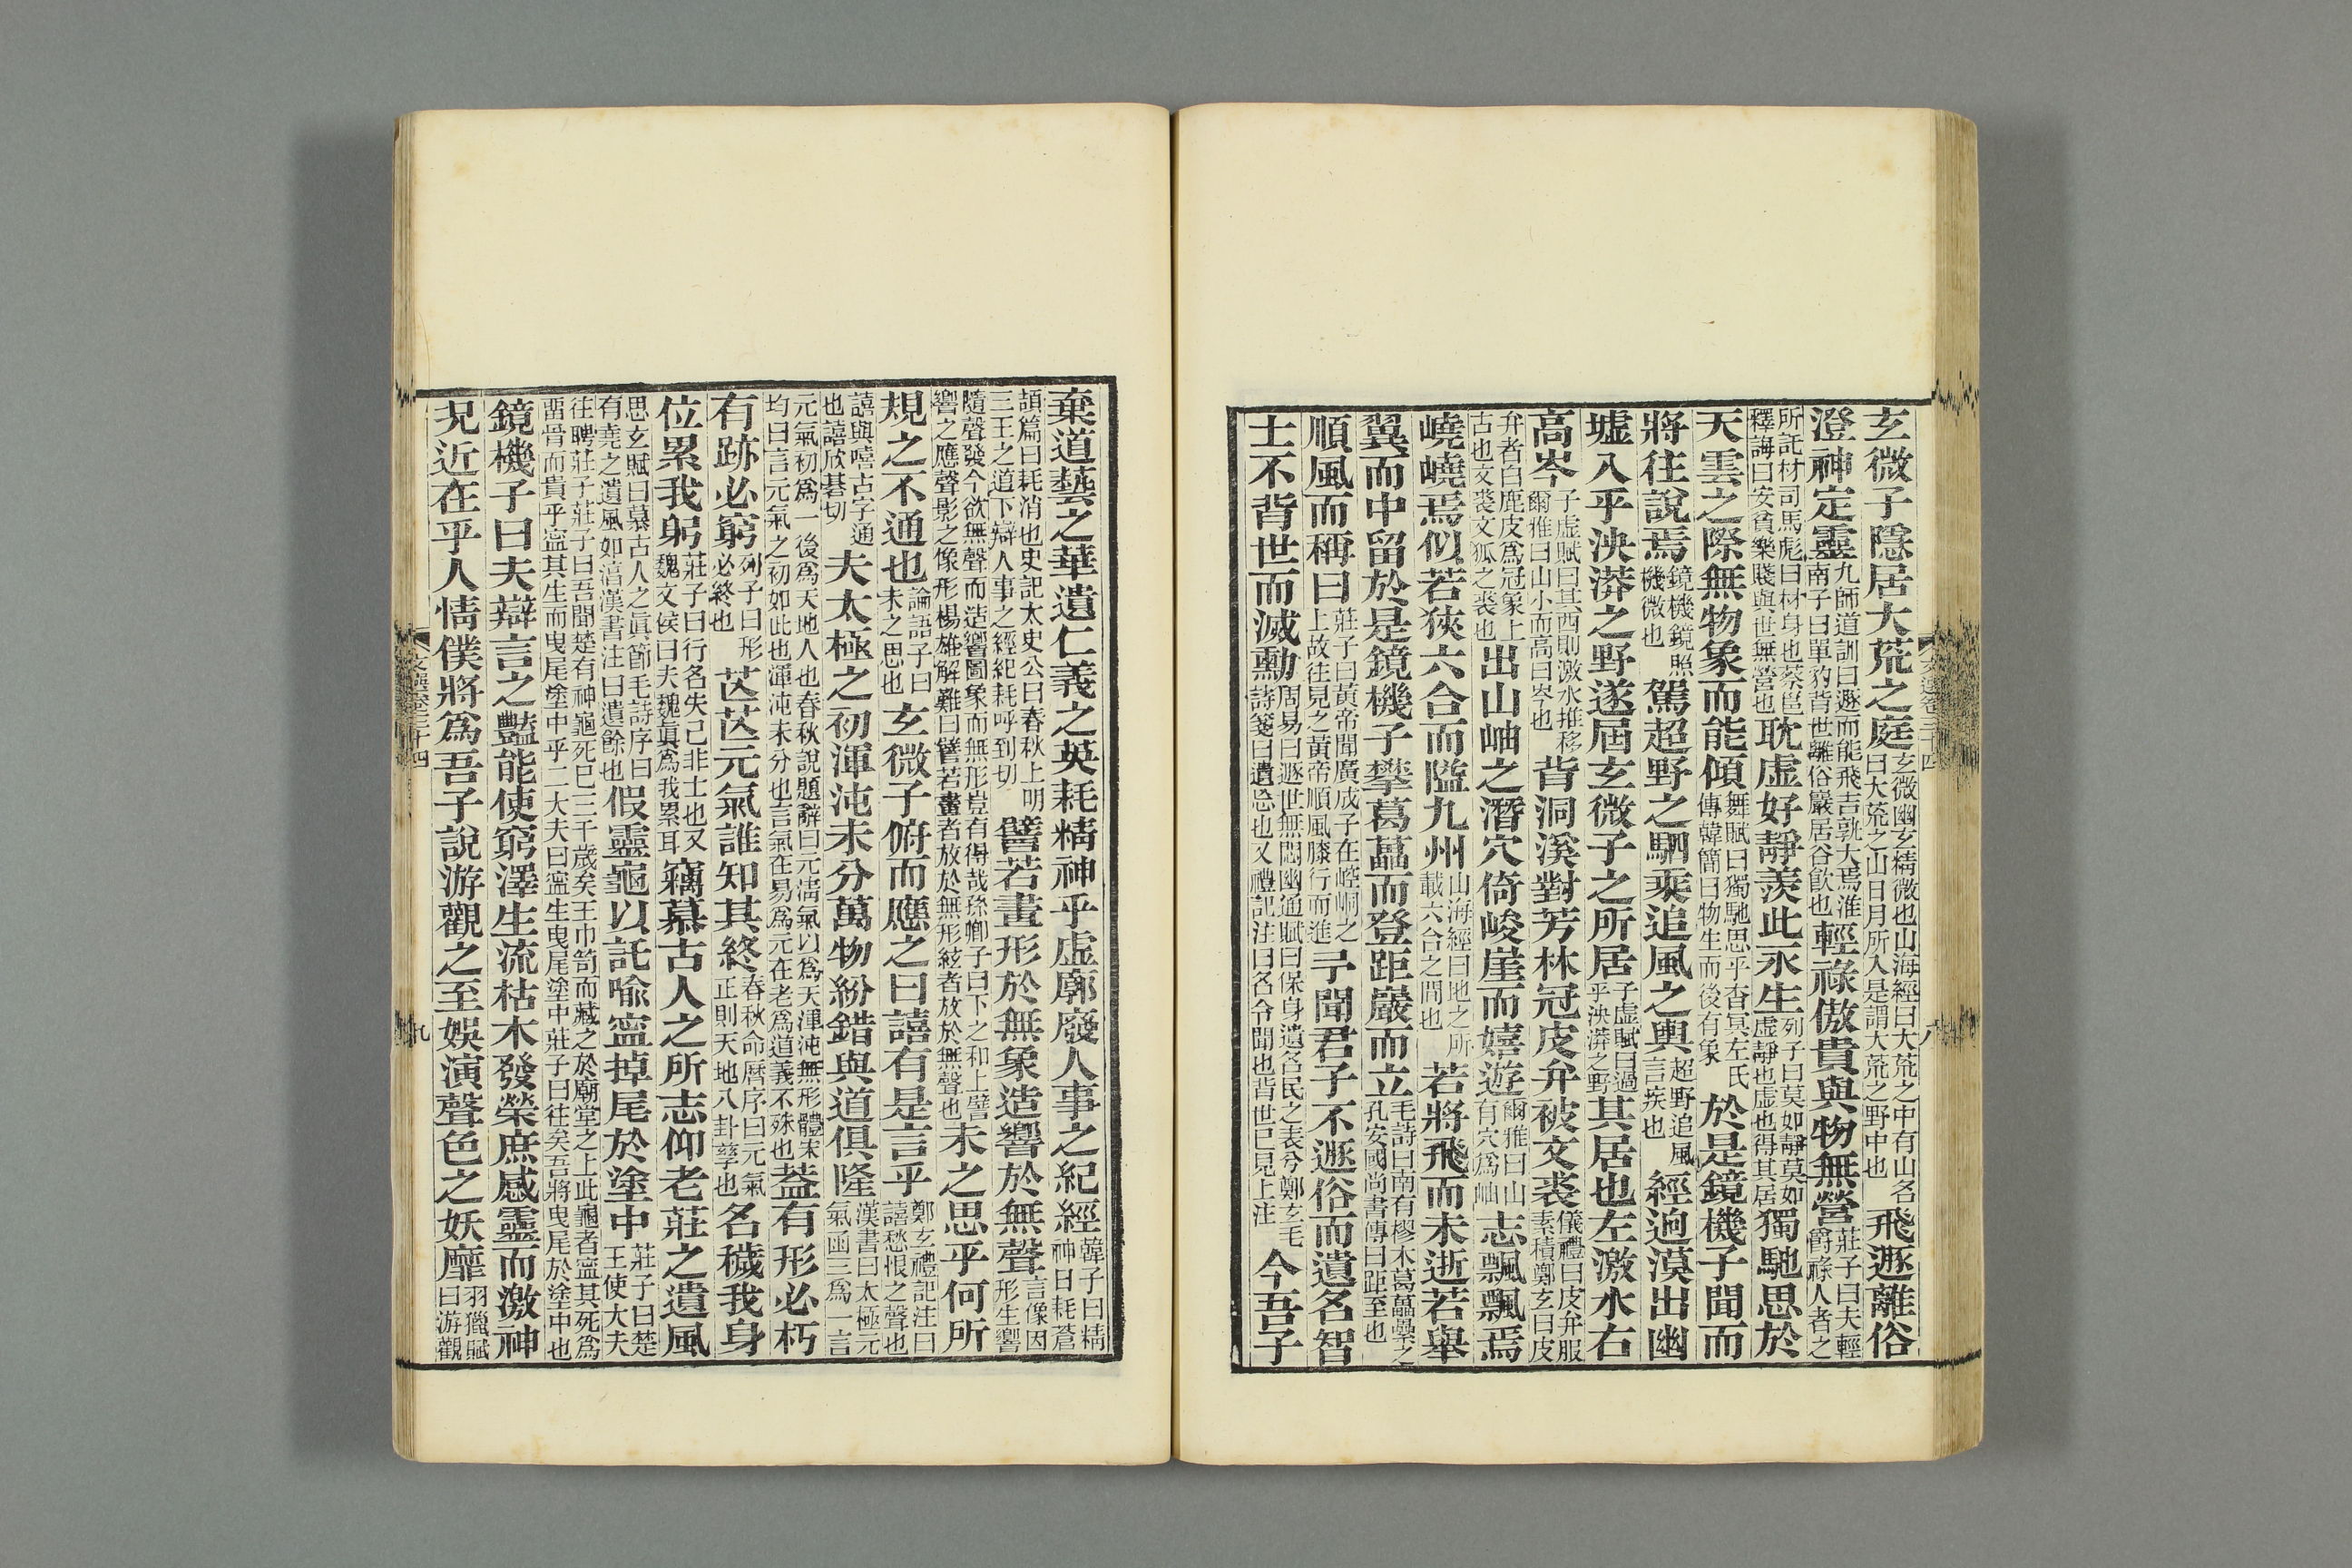 玄微子隱居大荒之庭玄微幽玄精微也山海經曰大荒之中有山名曰大荒之山日月所入是謂大荒之野中也飛遯離俗
澄神定靈九師道訓曰遯而能飛吉孰大焉淮南子曰單豹背世離俗巖居谷飮也輕祿傲貴與物無營莊子曰夫輕爵祿人者之
所託材司馬彪曰材身也蔡邕釋誨曰安貧樂賤與世無營也耽虛好靜羨此永生列子曰莫如靜莫如虛靜也虛也得其居獨馳思於
天雲之際無物象而能傾舞賦曰獨馳思乎杳冥左氏傳韓簡曰物生而後有象於是鏡機子聞而
將往說焉鏡機鏡照機微也駕超野之駟乘追風之輿超野追風言疾也經迥漠出幽
墟入乎泱漭之野遂屆玄微子之所居子虛賦曰過乎泱漭之野其居也左激水右
高岑子虛賦曰其西則激水推移爾雅曰山小而高曰岑也背洞溪對芳林冠皮弁被文裘儀禮曰皮弁服素積鄭玄曰皮
弁者白鹿皮爲冠象上古也文裘文狐之裘也出山岫之潛穴倚峻崖而嬉遊爾雅曰山有穴爲岫志飄飄焉
嶢嶢焉似若狹六合而隘九州山海經曰地之所載六合之閒也若將飛而未逝若舉
翼而中留於是鏡機子攀葛藟而登距巖而立毛詩曰南有樛木葛藟纍之孔安國尚書傳曰距至也
順風而稱曰莊子曰黃帝聞廣成子在崆峒之上故往見之黃帝順風膝行而進予聞君子不遯俗而遺名智
士不背世而滅勳周易曰遯世無悶幽通賦曰保身遺名民之表兮鄭玄毛詩箋曰遺忘也又禮記注曰名令聞也背世已見上注今吾子
棄道藝之華遺仁義之英耗精神乎虛廓廢人事之紀經韓子曰精神日耗蒼
頡篇曰耗消也史記太史公曰春秋上明三王之道下辯人事之經紀耗呼到切譬若畫形於無象造響於無聲言像因形生響
隨聲發今欲無聲而造響圖象而無形豈有得哉孫卿子曰下之和上譬響之應聲影之像形楊雄解難曰譬若畫者放於無形絃者放於無聲也未之思乎何所
規之不通也論語子曰未之思也玄微子俯而應之曰譆有是言乎鄭玄禮記注曰譆愁恨之聲也
譆與嘻古字通也譆欣碁切夫太極之初渾沌未分萬物紛錯與道俱隆漢書曰太極元氣函三爲一言
元氣初爲一後爲天地人也春秋說題辭曰元淸氣以爲天渾沌無形體宋均曰言元氣之初如此也渾沌未分也言氣在易爲元在老爲道義不殊也葢有形必朽
有跡必窮列子曰形必終也茫茫元氣誰知其終春秋命曆序曰元氣正則天地八卦孳也名穢我身
位累我躬莊子曰行名失己非士也又魏文侯曰夫魏眞爲我累耳竊慕古人之所志仰老莊之遺風
思玄賦曰慕古人之貞節毛詩序曰有堯之遺風如湻漢書注曰遺餘也假靈龜以託喻寍掉尾於塗中莊子曰楚王使大夫
往聘莊子莊子曰吾聞楚有神龜死已三千歲矣王巾笥而藏之於廟堂之上此龜者寍其死爲畱骨而貴乎寍其生而曳尾塗中乎二大夫曰寍生曳尾塗中莊子曰往矣吾將曳尾於塗中也
鏡機子曰夫辯言之豔能使窮澤生流枯木發榮庶感靈而激神
况近在乎人情僕將爲吾子說游觀之至娛演聲色之妖靡羽獵賦曰游觀
文選卷三十四
九